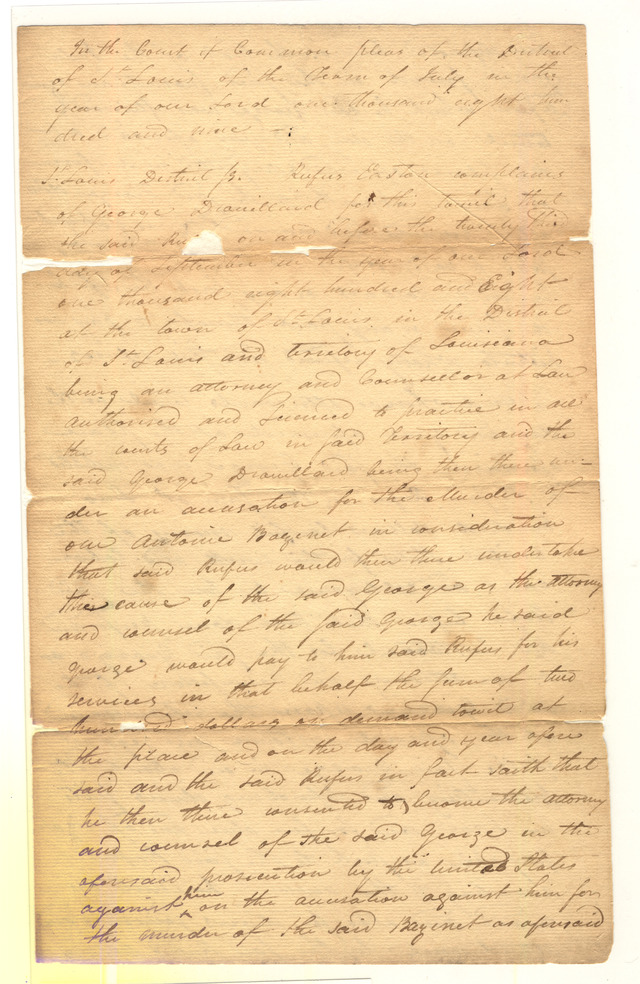 In the Court of Common pleas of the District
of St. Louis of the Term of July in the
year of our Lord one thousand eight hun
dred and nine —:
St. Louis District ss. Rufus Easton complains
of George Drouillard for this towit that
the said Rufus on and before the twenty third
day of September in the year of our Lord
one thousand eight hundred and Eight
at the town of St. Louis in the District
of St. Louis and territory of Louisiana
being an attorney and Counsellor at Law
authorised and Licenced to practice in all
the courts of Law in said Territory and the
said George Drouillard being then there un-
der an accusation for the Murder of
one Antoine Bazinet in consideration
that said Rufus would then there undertake
the cause of the said George as the attorney
and counsel of the said George he said
George would pay to him said Rufus for his
services in that behalf the sum of two
hundred dollars on demand towit at
the place and on the day and year afore
said and the said Rufus in fact saith that
he then there consented to become the attorney
and counsel of the said George in the
aforesaid prosecution by the United States
against him on the accusation against him for
the murder of the said Bazinet as aforesaid